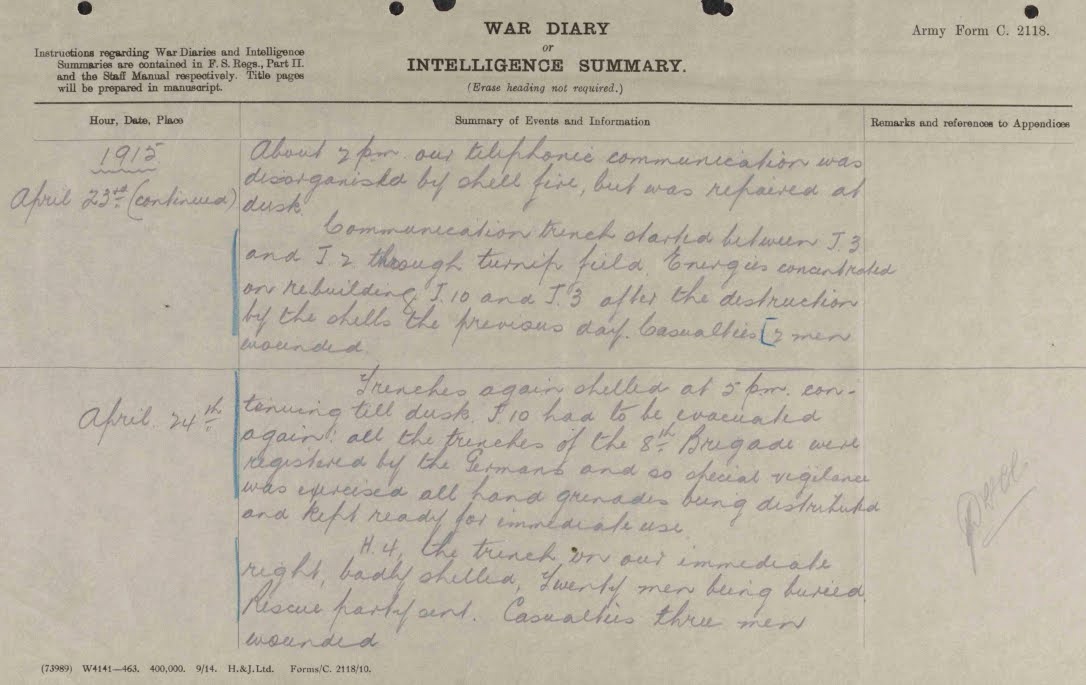 WAR DIARY
or
INTELLIGENCE SUMMARY.
(Erase heading not required.)
Army Form C. 2118.
Instructions regarding War Diaries and Intelligence
Summaries are contained in F. S. Regs., Part II.
and the Staff Manual respectively. Title pages
will be prepared in manuscript.
Hour, Date, Place
Summary of Events and Information
Remarks and references to Appendices
1915
April 23rd (continued)
About 2 pm. our telephonic communication was
disorganised by shell fire, but was repaired at
dusk.
Communication trench started between J.3
and J.2 through turnip field. Energies concentrated
on rebuilding J.10 and J.3 after the destruction
by the shells the previous day. Casualties [2 men
wounded.
April 24th
Trenches again shelled at 5 pm. con-
tinuing till dusk. J.10 had to be evacuated
again: all the trenches of the 8th Brigade were
registered by the Germans and so special vigilance
was exercised all hand grenades being distributed
and kept ready for immediate use.
H.4, the trench on our immediate
right, badly shelled, Twenty men being buried.
Rescue party sent. Casualties three men
wounded
(73989) W4141—463. 400,000. 9/14. H.&J.Ltd. Forms/C. 2118/10.